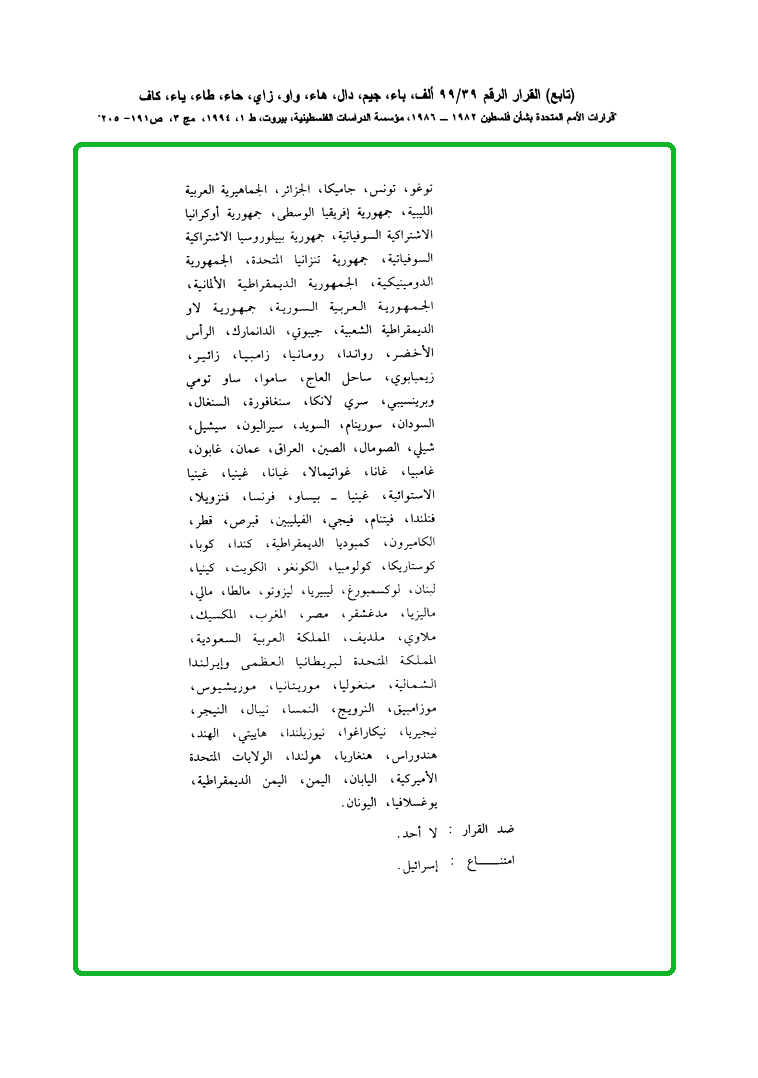 (تابع) القرار الرقم ٩٩/٣٩ ألف، باء، جيم، دال، هاء، واو، زاي، حاء، طاء، ياء، كاف
"قرارات الأمم المتحدة بشأن فلسطين ١٩٨٢ ــ ١٩٨٦، مؤسسة الدراسات الفلسطينية، بيروت، ط ١، ١٩٩٤، مج ٣، ص١٩١– ٢٠٥"
توغو، تونس، جاميكا، الجزائر، الجماهيرية العربية
الليبية، جمهورية إفريقيا الوسطى، جمهورية أوكرانيا
الاشتراكية السوفياتية، جمهورية بييلوروسيا الاشتراكية
السوفياتية، جمهورية تنزانيا المتحدة، الجمهورية
الدومينيكية، الجمهورية الديمقراطية الألمانية،
الجمهورية العربية السورية، جمهورية لاو
الديمقراطية الشعبية، جيبوتي، الدانمارك، الرأس
الأخضر، رواندا، رومانيا، زامبيا، زائير،
زيمبابوي، ساحل العاج، ساموا، ساو تومي
وبرينسيبي، سري لانكا، سنغافورة، السنغال،
السودان، سورينام، السويد، سيراليون، سيشيل،
شيلي، الصومال، الصين، العراق، عمان، غابون،
غامبيا، غانا، غواتيمالا، غيانا، غينيا، غينيا
الاستوائية، غينيا ــ بيساو، فرنسا، فنزويلا،
فنلندا، فيتنام، فيجي، الفيليبين، قبرص، قطر،
الكاميرون، كمبوديا الديمقراطية، كندا، كوبا،
كوستاريكا، كولومبيا، الكونغو، الكويت، كينيا،
لبنان، لوكسمبورغ، ليبيريا، ليزوتو، مالطا، مالي،
ماليزيا، مدغشقر، مصر، المغرب، المكسيك،
ملاوي، ملديف، المملكة العربية السعودية،
المملكة المتحدة لبريطانيا العظمى وإيرلندا
الشمالية، منغوليا، موريتانيا، موريشيوس،
موزامبيق، النرويج، النمسا، نيبال، النيجر،
نيجيريا، نيكاراغوا، نيوزيلندا، هاييتي، الهند،
هندوراس، هنغاريا، هولندا، الولايات المتحدة
الأميركية، اليابان، اليمن، اليمن الديمقراطية،
يوغسلافيا، اليونان.
ضد القرار : لا أحد.
امتنـــــاع : إسرائيل.